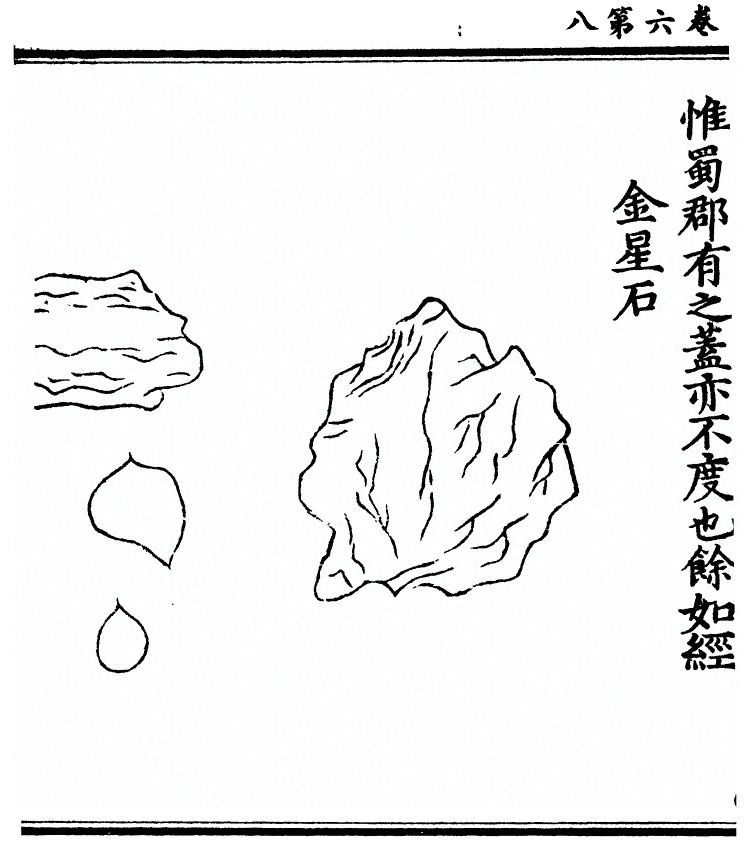 卷六第八
惟蜀郡有之蓋亦不度也餘如經
金星石